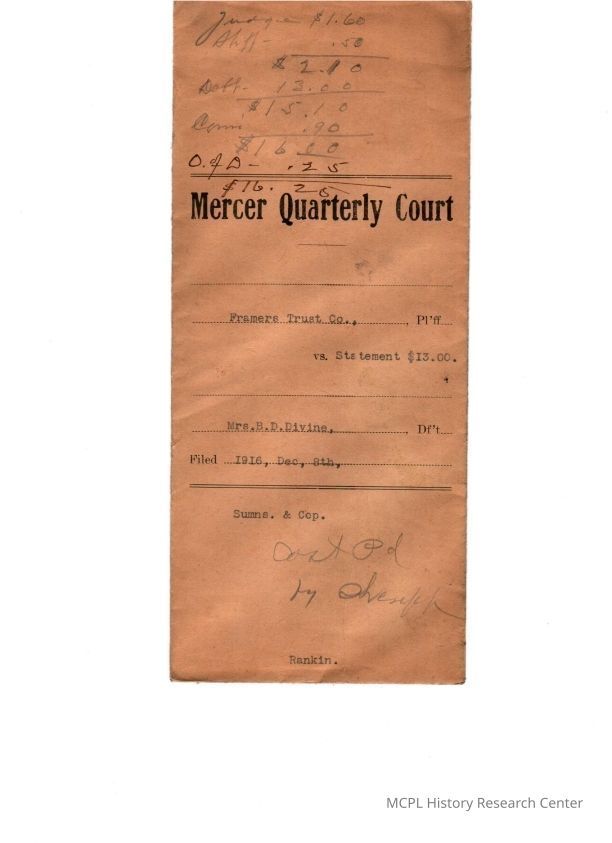 Judge $1.60
Shff- .50
$2.10
Debt- 13.00
$15.10
Com .90
$16.00
O.f D- .25
$16.25
Mercer Quarterly Court
Framers Trust Co., , Pl'ff
vs. Statement $13.00.
Mrs.B.D.Divine, , Df't
Filed 1916, Dec, 8th,
Sumns. & Cop.
Cost Pd
by Sheriff
Rankin.
MCPL History Research Center